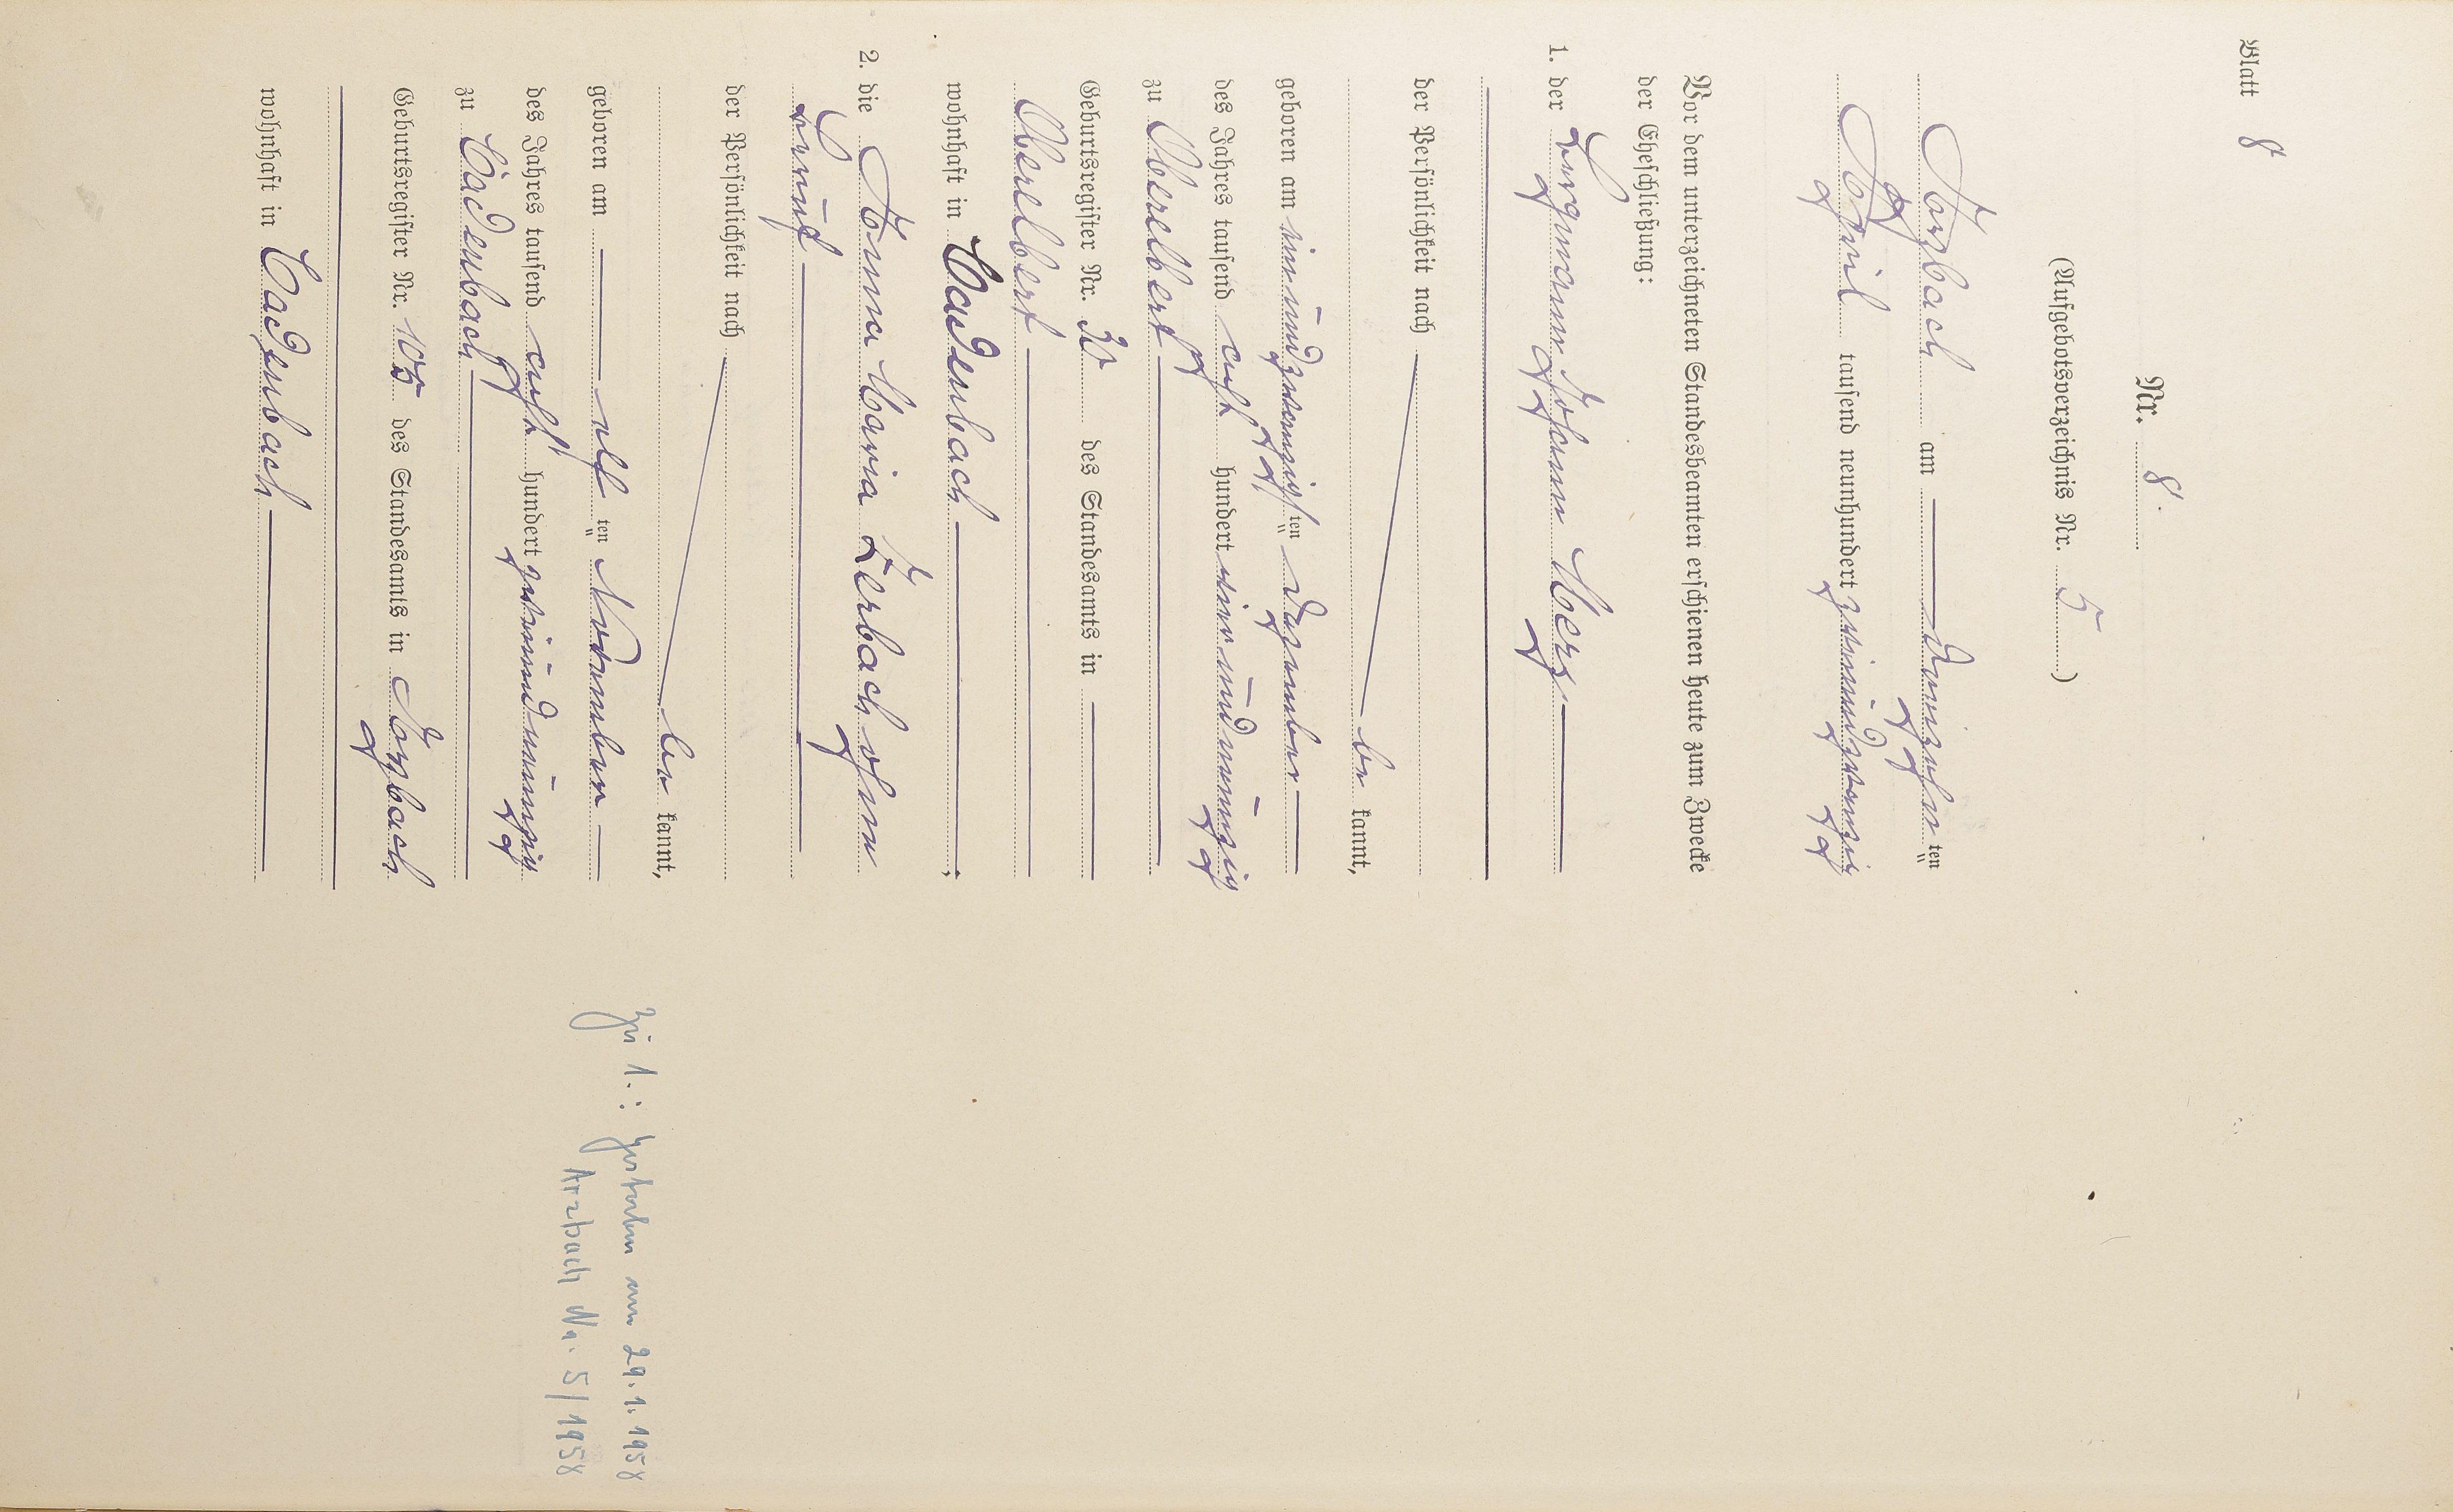 Blatt 8
Nr. 8.
(Aufgebotsverzeichnis Nr. 5)
Arzbach am — dreizehnten
April tausend neunhundert zweiundzwanzig
Vor dem unterzeichneten Standesbeamten erschienen heute zum Zwecke
der Eheschließung:
1. der Bergmann Johann Merz —
der Persönlichkeit nach
be kannt,
geboren am einundzwanzigsten Dezember
des Jahres tausend acht hundert vierundneunzig
zu Oberelbert
Geburtsregister Nr. 30 des Standesamts in
Oberelbert
wohnhaft in Cadenbach ,
2. die Anna Maria Zerbach ohne
Beruf
der Persönlichkeit nach
be kannt,
geboren am — elften November —
des Jahres tausend acht hundert zweiundneunzig
zu Cadenbach
Geburtsregister Nr. 105 des Standesamts in Arzbach
wohnhaft in Cadenbach
Zu 1.: gestorben am 29.1.1958
Arzbach Nr. 5/1958